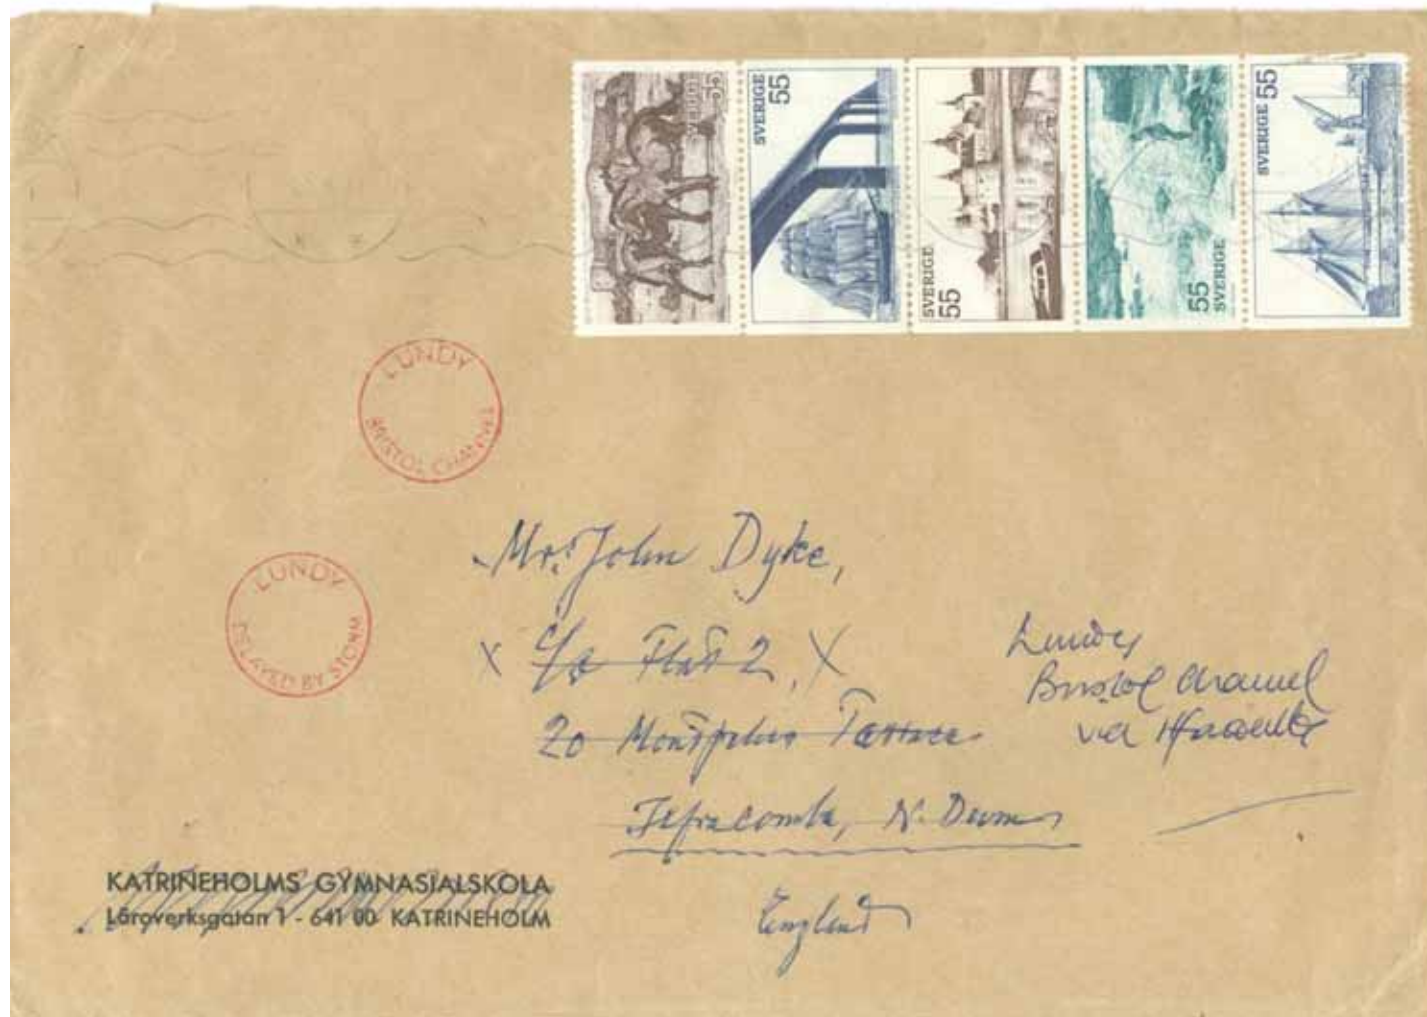 SVERIGE 55
SVERIGE 55
SVERIGE 55
55 SVERIGE
SVERIGE 55
LUNDY
BRISTOL CHANNEL
LUNDY
DELAYED BY STORM
Mr. John Dyke,
x c/o Flat 2, x
20 Montpelier Terrace
Ilfracombe, N. Devon
England
Lundy
Bristol Channel
via Ilfracombe
KATRINEHOLMS GYMNASIALSKOLA
Läroverksgatan 1 - 641 00 KATRINEHOLM